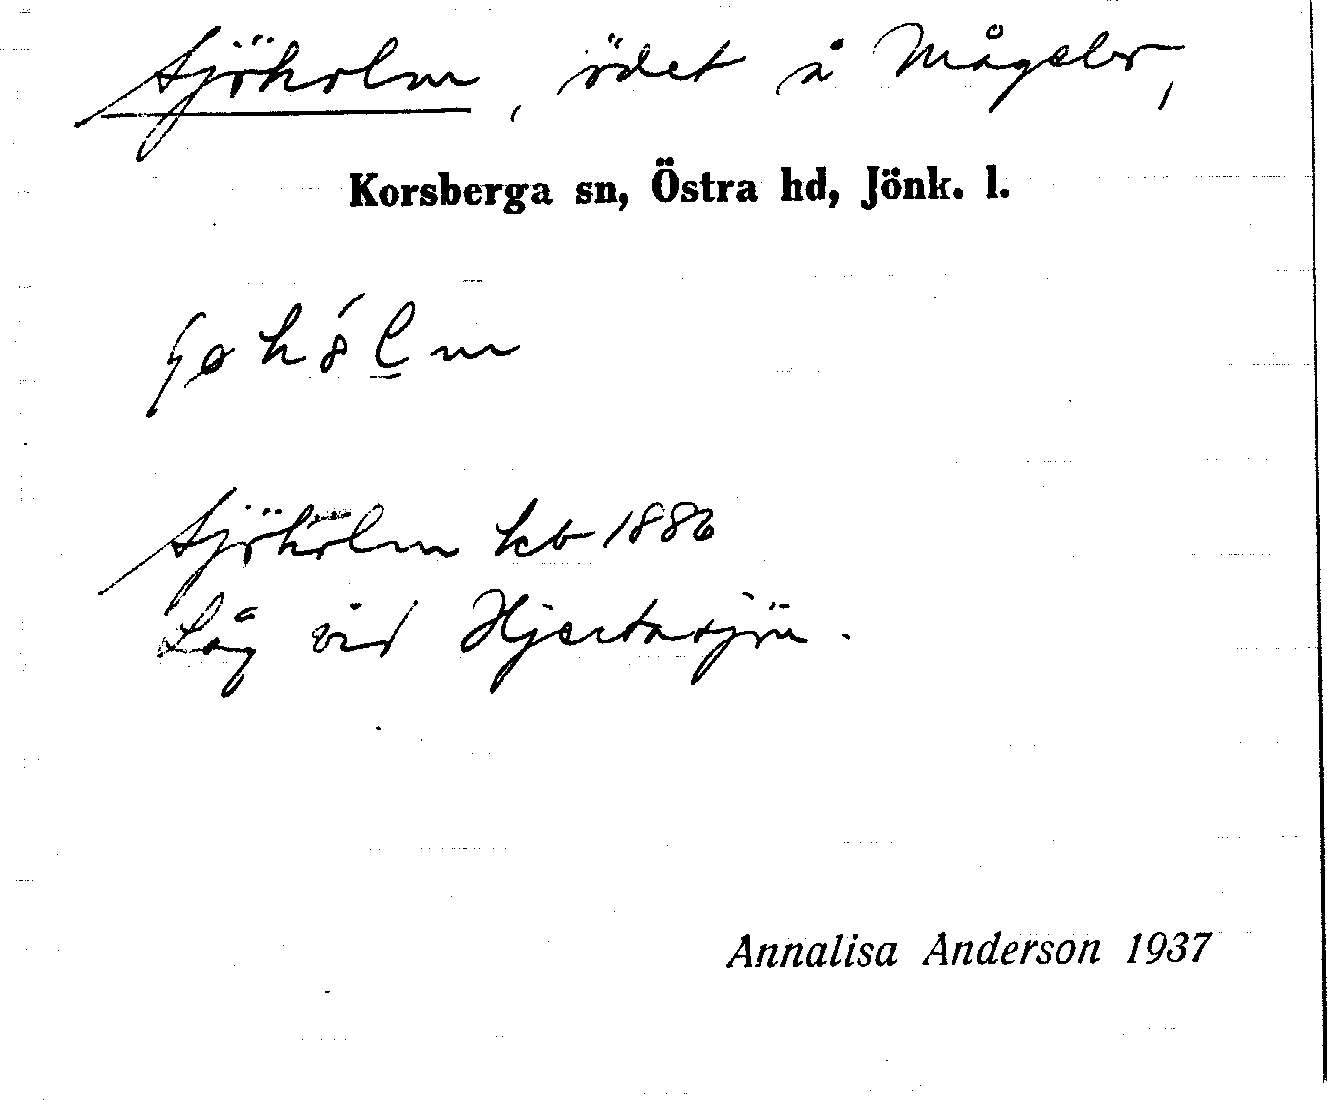 Sjöholm, ödet å Mågeler,
Korsberga sn, Östra hd, Jönk. l.
Sjöholm kb 1886
Låg vid Hjertasjön.
Annalisa Anderson 1937